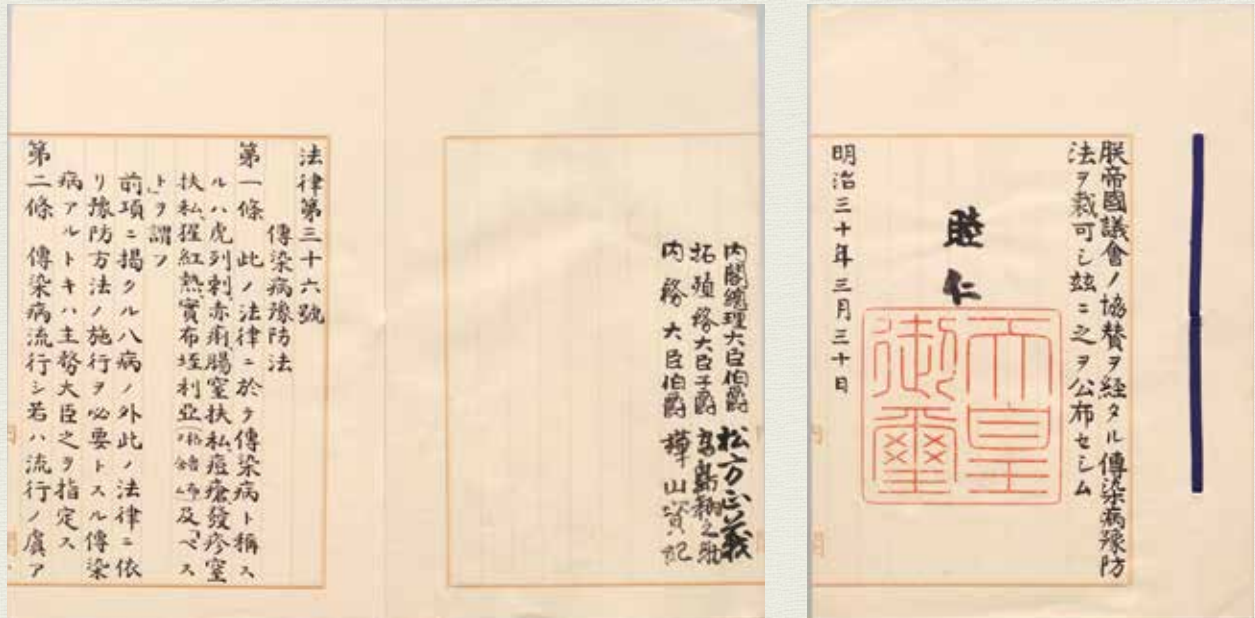 朕帝國議會ノ協賛ヲ経タル傳染病豫防
法ヲ裁可シ玆ニ之ヲ公布セシム
睦仁
天皇御璽
明治三十年三月三十日
内閣總理大臣伯爵 松方正義
拓殖務大臣子爵 高島鞆之助
内務大臣伯爵 樺山資紀
法律第三十六號
傳染病豫防法
第一條 此ノ法律ニ於テ傳染病ト稱ス
ルハ虎列剌、赤痢、腸窒扶私、痘瘡、發疹窒
扶私、猩紅熱、實布垤利亞及「ペス
ト」ヲ謂フ
前項ニ掲クル八病ノ外此ノ法律ニ依
リ豫防方法ノ施行ヲ必要トスル傳染
病アルトキハ主務大臣之ヲ指定ス
第二條 傳染病流行シ若ハ流行ノ虞ア